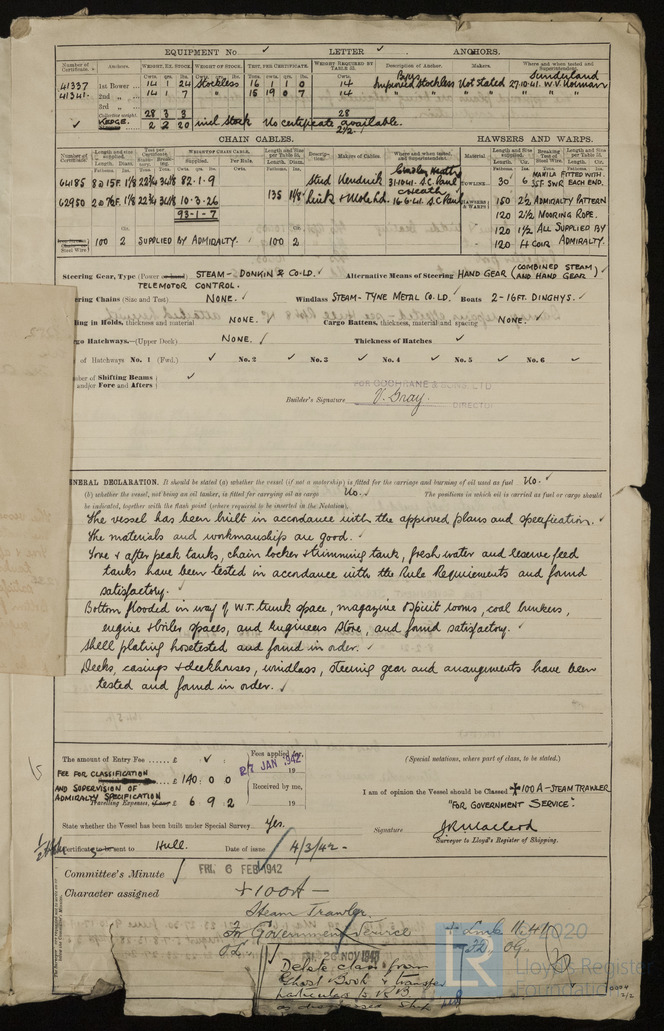 EQUIPMENT No ✓ LETTER ✓ ANCHORS.
Number of Certificate. Anchors. WEIGHT, EX. STOCK. WEIGHT OF STOCK. TEST, PER CERTIFICATE. WEIGHT REQUIRED BY TABLE 31. Description of Anchor. Makers. Where and when tested and Superintendent.
Cwts. qrs. lb. Cwts. Byers Sunderland
41337 1st Bower 14 1 24 Stockless 16 1 1 0 14 Improved Stockless Not Stated 27·10·41. W.V. Norman
41341 2nd „ 14 1 7 „ 15 19 0 7 14 „ „ „ „
3rd „
Collective weight 28 3 3 28
✓ KEDGE. 2 2 20 incl stock No certificate available. 2½
CHAIN CABLES. HAWSERS AND WARPS.
Number of Certificate. Length and size supplied. WEIGHT OF CHAIN CABLE. Length and Size per Table 31. Description. Makers of Cables. Where and when tested and Superintendent. Material. Length and Size supplied. Breaking Test of Steel Wire. Length and Size per Table 31.
Fathoms. Ins. Supplied. Per Rule. Fathoms. Ins. Cradley Heath
64185 82 1/8 22¾ 34 1/8 82·1·9 Stud Kendrick 31·10·41. S.C. Paul TOWLINE 30 6 MANILA FITTED WITH
S.W.R EACH END.
135 1 1/8
62950 1/8 22¾ 34 1/8 10·3·26 Link & Mole Ltd. 16·6·41. S.C. Paul HAWSERS & WARPS 150 2½ ADMIRALTY PATTERN
93-1-7 120 2½ MOORING ROPE.
120 1½ ALL SUPPLIED BY
Steel Wire 100 2 SUPPLIED BY ADMIRALTY. 100 2 120 4 COIR ADMIRALTY.
Steering Gear, Type (Power or hand) STEAM - DONKIN & CO. LD. ✓ Alternative Means of Steering HAND GEAR (COMBINED STEAM AND HAND GEAR) ✓
TELEMOTOR CONTROL.
ering Chains (Size and Test) NONE. ✓ Windlass STEAM - TYNE METAL CO. LD. Boats 2 - 16FT. DINGHYS. ✓
ling in Holds, thickness and material NONE. ✓ Cargo Battens, thickness, material and spacing NONE. ✓
rgo Hatchways.—(Upper Deck) NONE. ✓ Thickness of Hatches ✓
of Hatchways No. 1 (Fwd.) ✓ No. 2 ✓ No. 3 ✓ No. 4 ✓ No. 5 ✓ No. 6 ✓
mber of Shifting Beams and/or Fore and Afters ✓
FOR COCHRANE & SONS LTD
Builder's Signature V. Gray.
DIRECTOR
NERAL DECLARATION. It should be stated (a) whether the vessel (if not a motorship) is fitted for the carriage and burning of oil used as fuel No. ✓
(b) whether the vessel, not being an oil tanker, is fitted for carrying oil as cargo No. ✓ The positions in which oil is carried as fuel or cargo should
be indicated, together with the flash point (where required to be inserted in the Notation).
The vessel has been built in accordance with the approved plans and specification. ✓
The materials and workmanship are good. ✓
Fore & after peak tanks, chain locker & trimming tank, fresh water and reserve feed
tanks have been tested in accordance with the Rule Requirements and found
satisfactory. ✓
Bottom flooded in way of W.T. trunk space, magazine & spirit rooms, coal bunkers,
engine & boiler spaces, and Engineers Store, and found satisfactory. ✓
Shell plating hosetested and found in order. ✓
Decks, casings & deckhouses, windlass, steering gear and arrangements have been
tested and found in order. ✓
The amount of Entry Fee ..... £ ✓ Fees applied for, (Special notations, where part of class, to be stated.)
27 JAN 1942
FEE FOR CLASSIFICATION £ 140 : 0 0 19
AND SUPERVISION OF Received by me, I am of opinion the Vessel should be Classed ✠100 A - STEAM TRAWLER
ADMIRALTY SPECIFICATION
Travelling Expenses, £ 6 9 2 19 "FOR GOVERNMENT SERVICE".
State whether the Vessel has been built under Special Survey Yes.
Signature
Surveyor to Lloyd's Register of Shipping.
Certificate to be sent to Hull. Date of issue 4/3/42-
Committee's Minute FRI. 6 FEB 1942
Character assigned ✠100A —
Steam Trawler
For Government Service
FRI. 26 NOV 1943
Delete class from
Ghost Book & Transfer
particulars to R B
LR
2020
Lloyd's Register
Foundation
0004
2/2